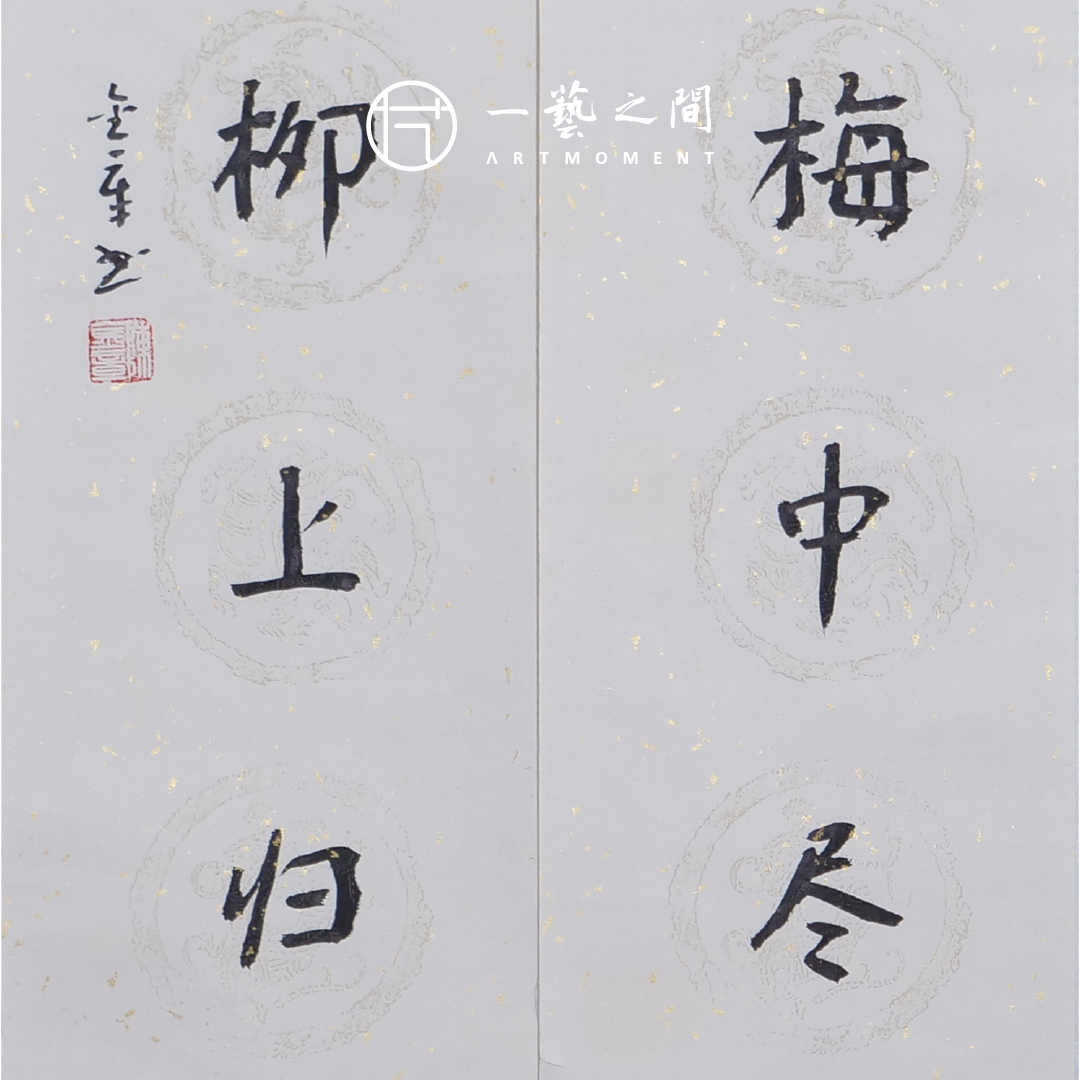 一藝之間
ARTMOMENT
梅中尽
柳上归
金章书